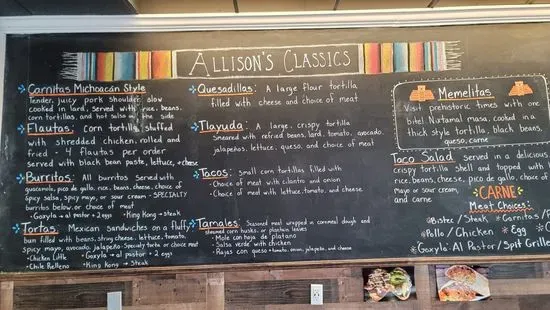 ALLISON'S CLASSICS
Carnitas Michoacan Style
Tender, juicy pork shoulder, slow
cooked in lard, served with rice, beans,
corn tortillas, and hot salsa on the side
Flautas: Corn tortilla, stuffed
with shredded chicken, rolled and
fried - 4 flautas per order
Served with black bean paste, lettuce, + cheese
Burritos: All burritos served with
guacamole, pico de gallo, rice, beans, cheese, choice of
spicy salsa, spicy mayo, or sour cream · SPECIALTY
burritos below, or choice of meat
· Goxyla → al pastor + 2 eggs · King Kong → steak
Tortas: Mexican sandwiches on a fluffy
bun filled with beans, string cheese, lettuce, tomato,
spicy mayo, avocado, jalapeño. Specialty torta or choice meat
· Chicken Little · Goxyla → al pastor + 2 eggs
· Chile Relleno · King Kong → Steak
Quesadillas: A large flour tortilla
filled with cheese and choice of meat
Tlayuda: A large, crispy tortilla
smeared with refried beans, lard, tomato, avocado,
jalapeños, lettuce, queso, and choice of meat
Tacos: small corn tortillas filled with
· Choice of meat with cilantro and onion
· Choice of meat with lettuce, tomato, and cheese
Tamales: Seasoned meat wrapped in cornmeal dough and
steamed corn husks, or plantain leaves
· Mole con hoja de platano
· Salsa verde with chicken
· Rajas con queso → tomato, onion, jalapeño, and cheese
Memelitas
Visit prehistoric times with one
bite! Nixtamal masa, cooked in a
thick style tortilla, black beans,
queso, carne
Taco Salad served in a delicious
crispy tortilla shell and topped with
rice, beans, cheese, pico de gallo, choice of
mayo or sour cream,
and carne
CARNE
Meat Choices:
· Bistec / Steak · Carnitas /
· Pollo / Chicken · Egg
· Goxyla: Al Pastor / Spit Grilled